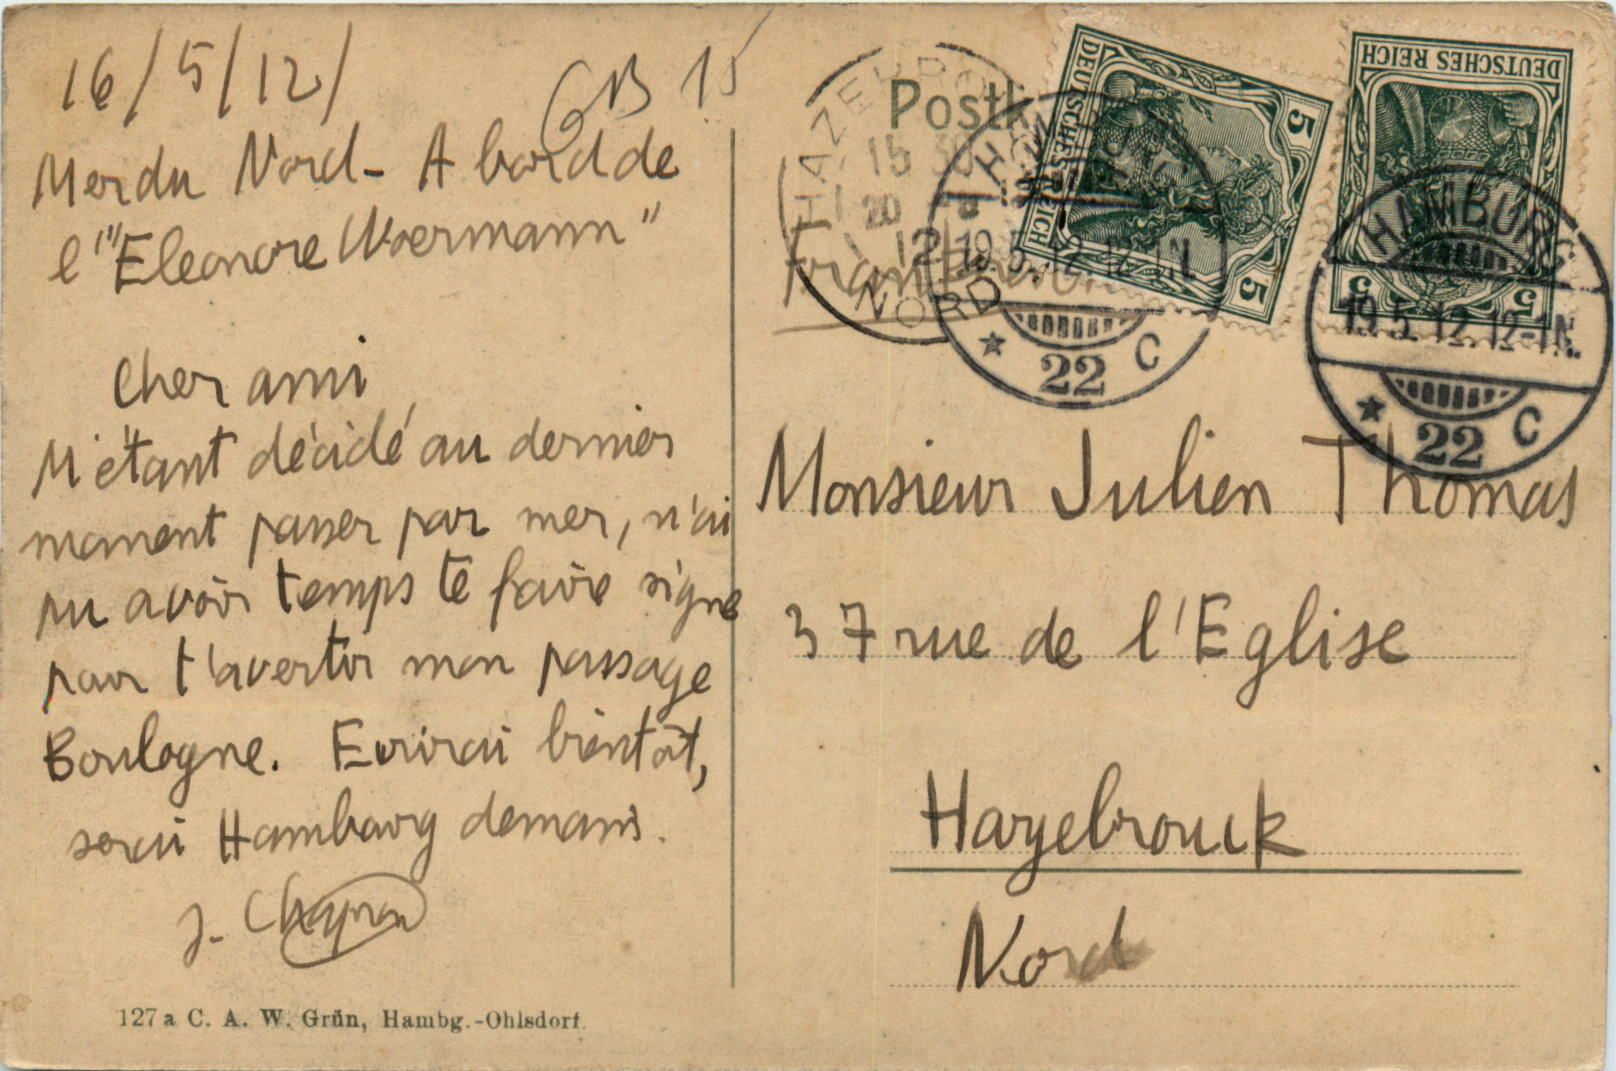 16/5/12/
GB 15
Mer du Nord - A bord de
l'"Eleonore Woermann"
Cher ami
M'étant décidé au dernier
moment passer par mer, n'ai
pu avoir temps te faire signe
pour t'avertir mon passage
Boulogne. Ecrirai bientôt,
serai Hambourg demain.
J. Chapron
127a C. A. W. Grün, Hambg.-Ohlsdorf.
Postk
HAZEBRO
15 30
20
12
NORD
HAMBURG
19.5.12.12-1N.
* 22 C
DEUTSCHES REICH
5 5
DEUTSCHES REICH
5 5
HAMBURG
19.5.12.12-1N.
* 22 C
Monsieur Julien Thomas
37 rue de l'Eglise
Hazebrouck
Nord